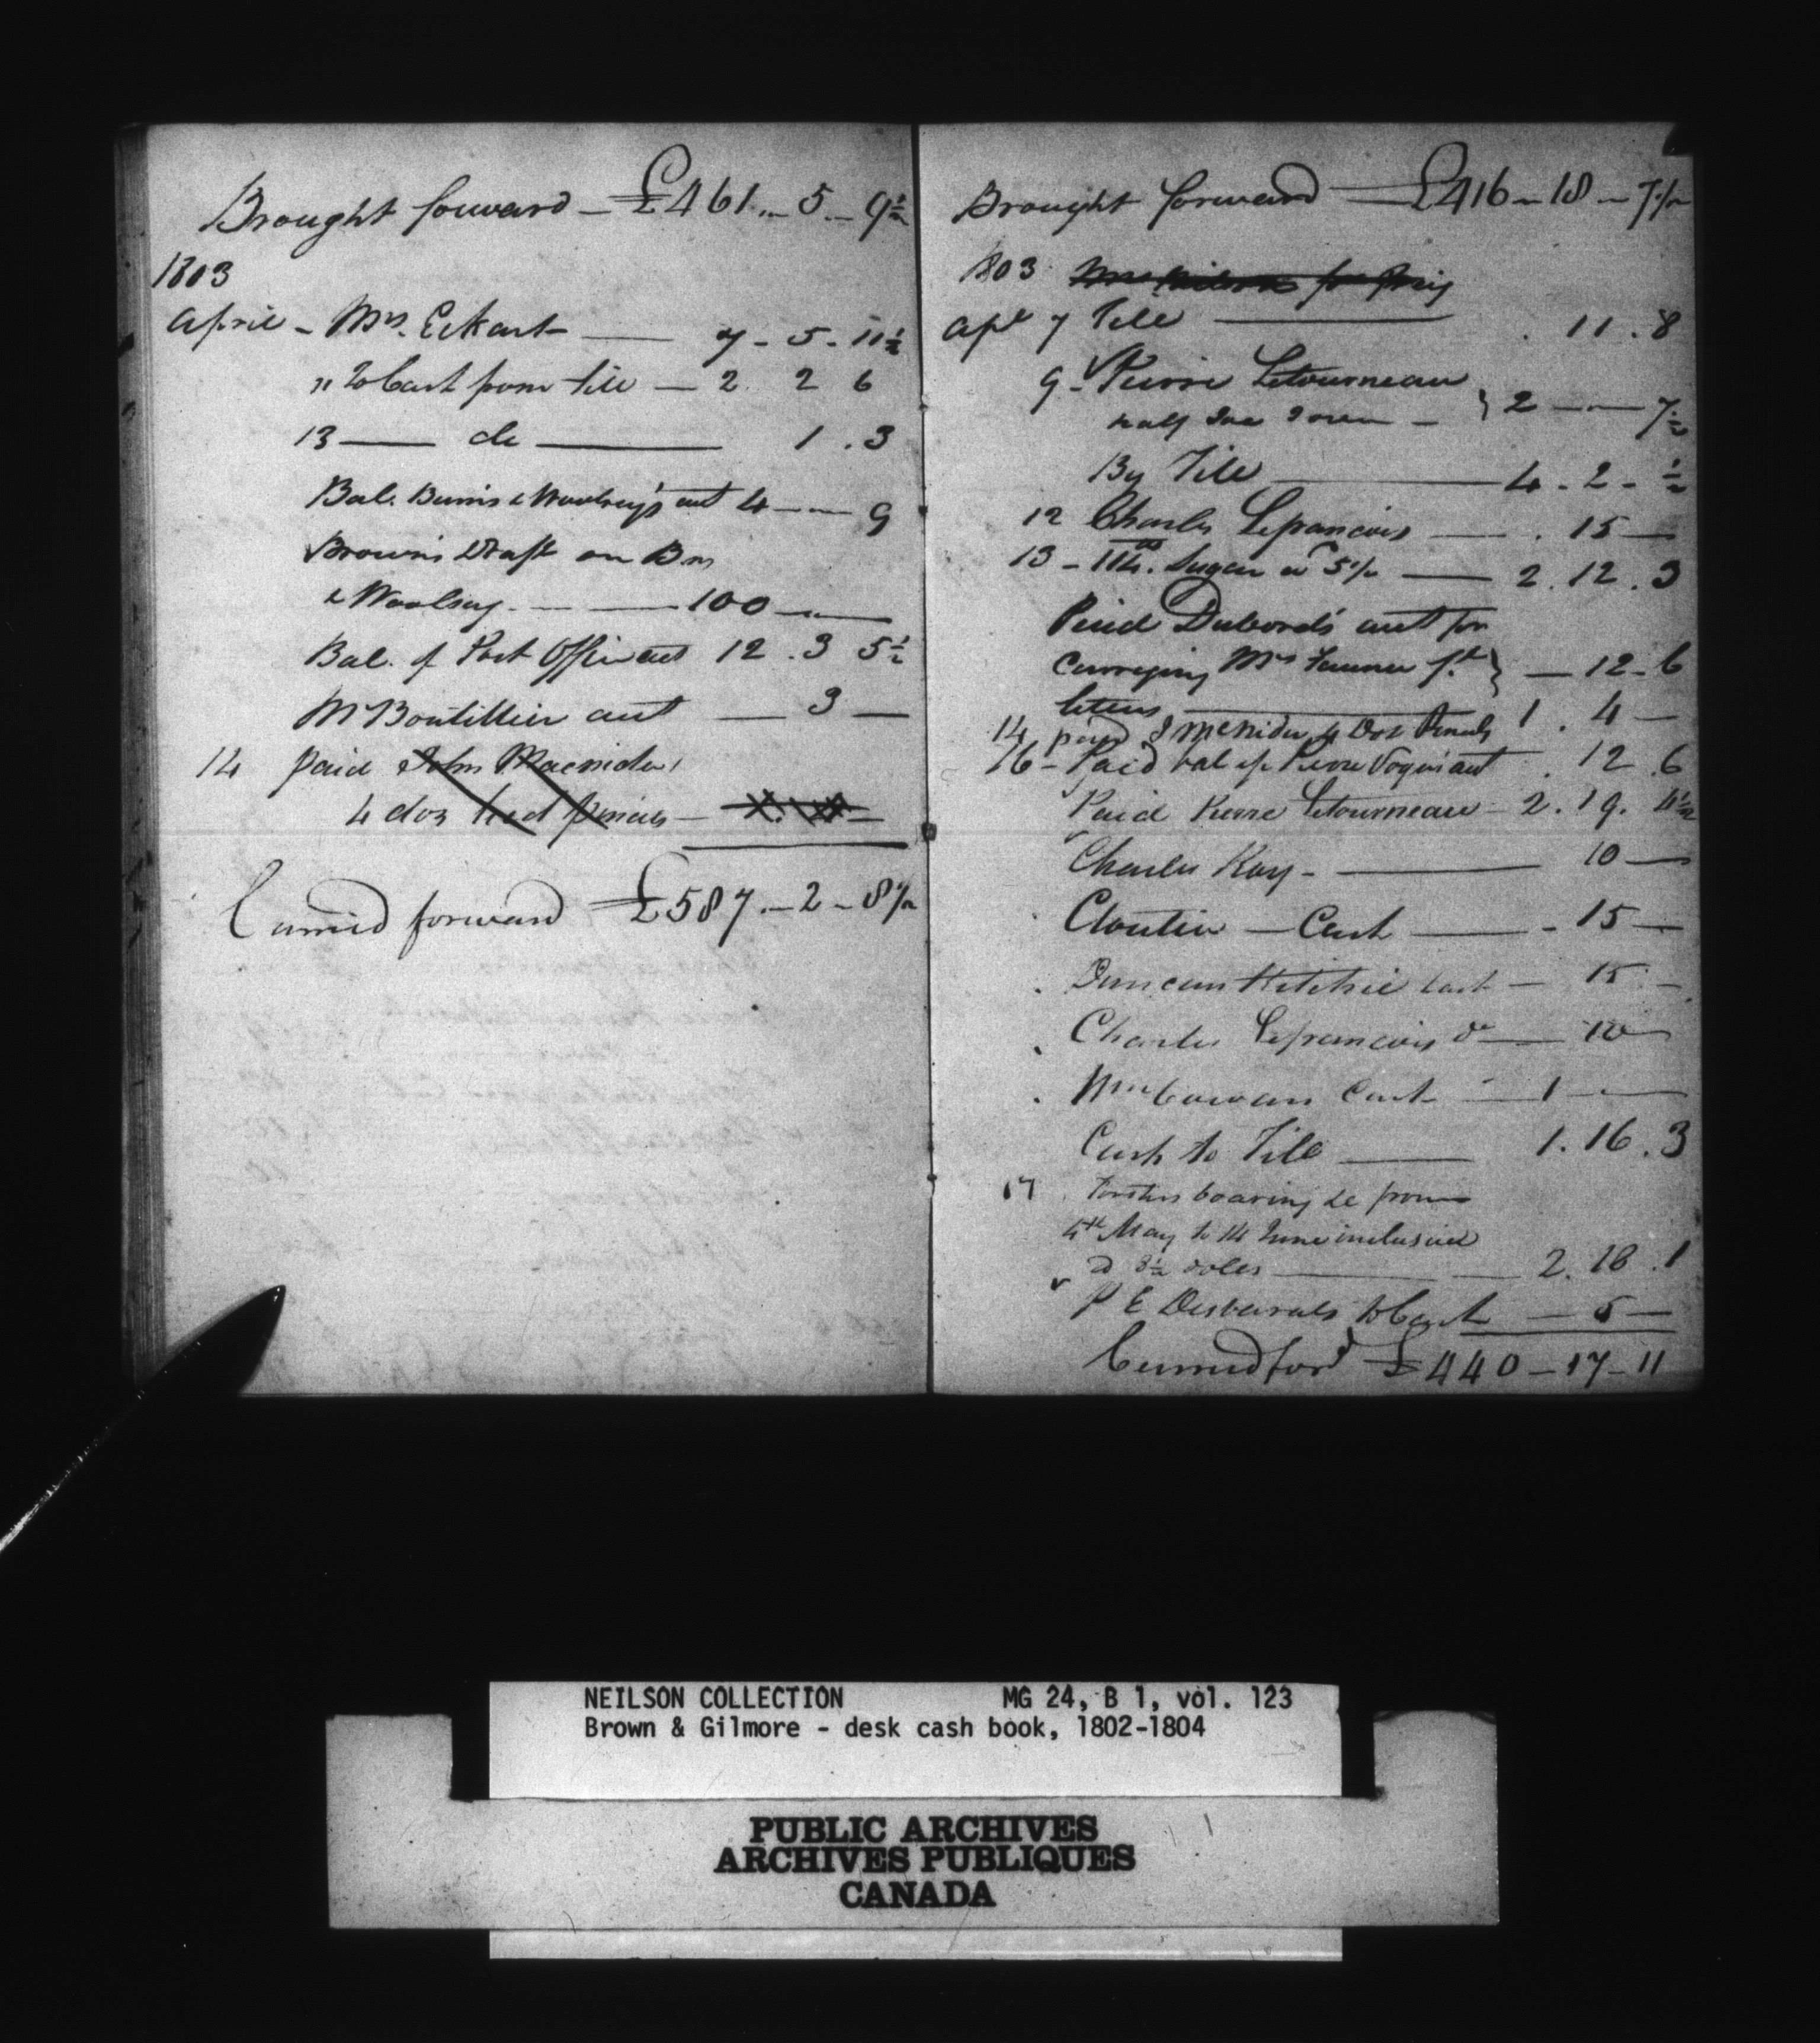 Brought forward — £461 .. 5 .. 9½
1803
April - Mrs. Eckart — 7 - 5 - 11½
" To Cash from till — 2. 2 6
13 — do — 1 . 3
Bal. Burns & Woolsey's act 4 — — 9
Brown's Draft on Bns
& Woolsey — 100 —
Bal. of Post Office act 12 . 3 5½
Mr Boutillier act — 3 —
14 paid John Macnider
4 doz lead pencils —
Carried forward £587 .. 2 - 8½
Brought forward — £416 - 18 - 7½
1803
Apl 7 Till — . 11 . 8
9 - Pierre Letourneau
half } 2 — 7½
By Till — 4 - 2 - ½
12 Charles Lefrancois — . 15 —
13 - 114. Sugar a 5½ — 2 . 12 . 3
Paid Dubord's act for
carrying Mrs } — 12 - 6
letters
14 paid J McNider 4 Doz Pencils 1 . 4 —
16 - Paid bal of Pierre act . 12 . 6
Paid Pierre Letourneau - 2 . 19 . 4½
Charles Roy - — 10 —
Cloutier — Cash — - 15 —
Duncan Ritchie Cash — 15 —
Charles Lefrancois do — 10
Wm Cowan Cash — 1 —
Cash to Till — 1 . 16 . 3
17 boarding &c from
4th May to 14 June inclusive
@ 3½ — 2 . 18 . 1
P E Desbarats to Cash — 5 —
Carried ford £440 - 17 - 11
NEILSON COLLECTION MG 24, B 1, vol. 123
Brown & Gilmore - desk cash book, 1802-1804
PUBLIC ARCHIVES
ARCHIVES PUBLIQUES
CANADA